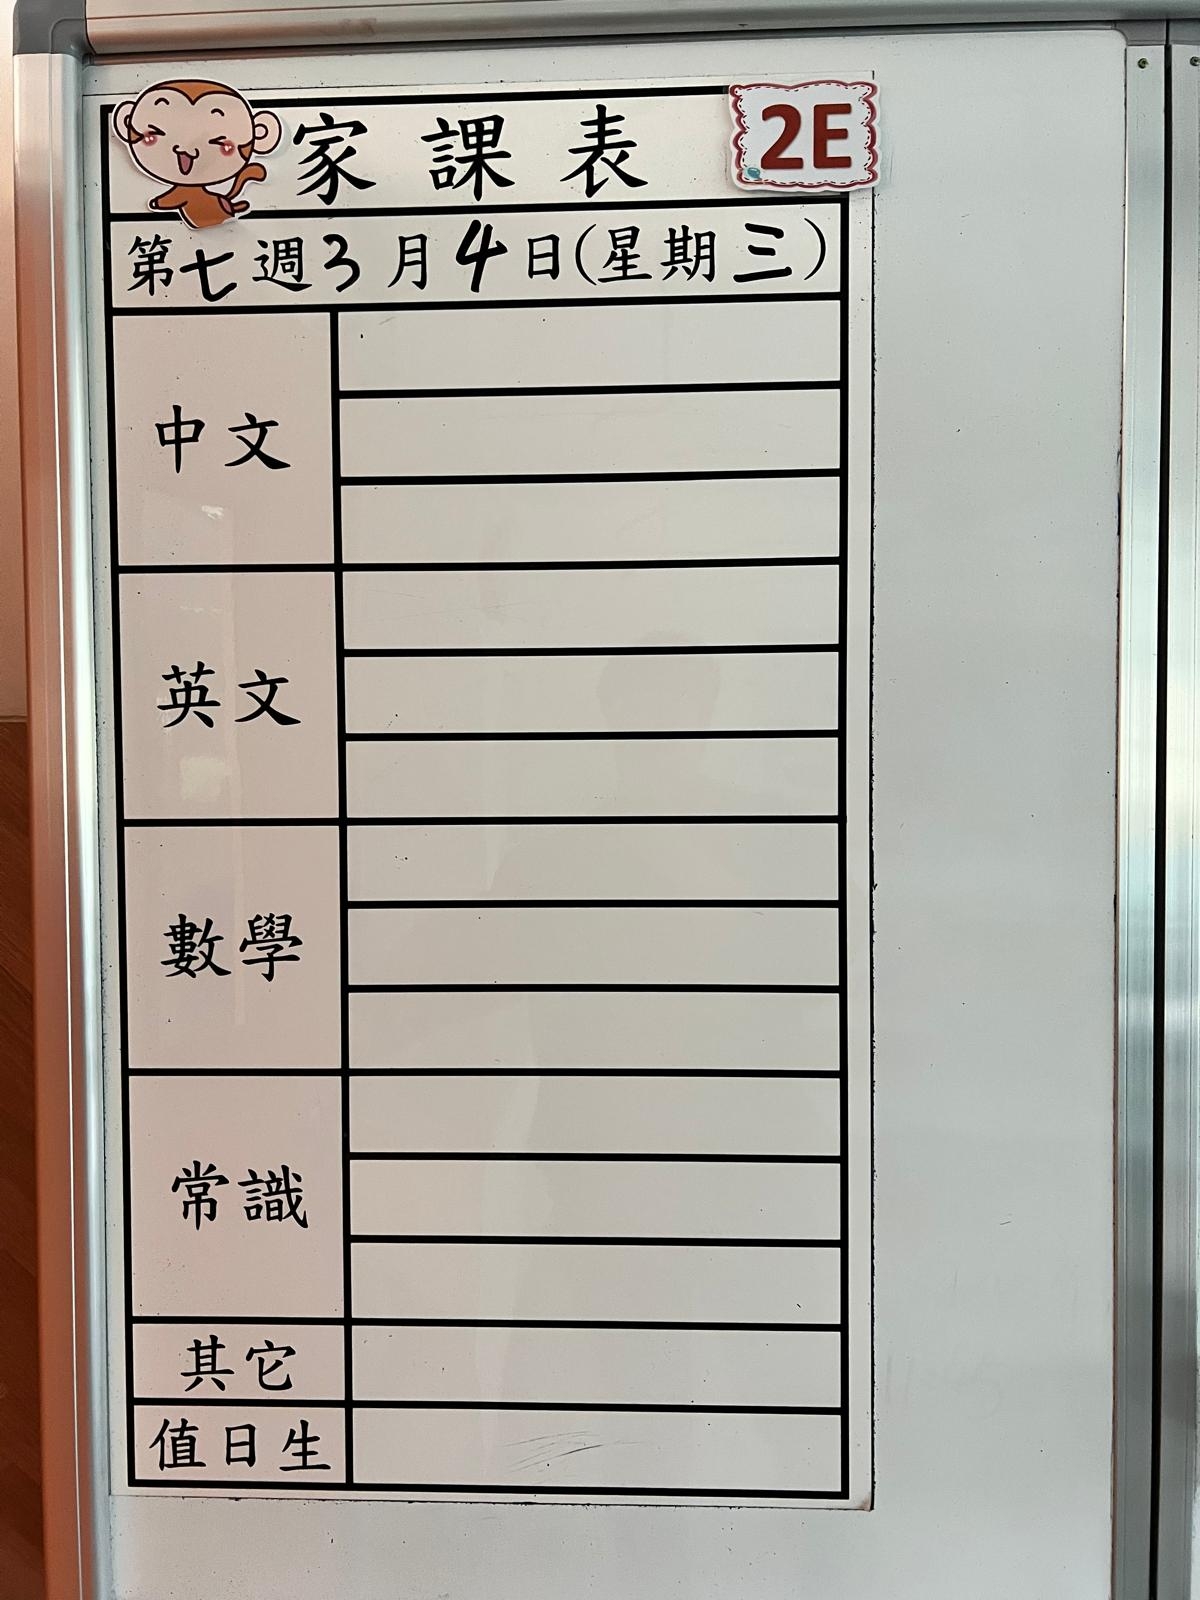 家課表 2E
第七週3月4日(星期三)
中文
英文
數學
常識
其它
值日生